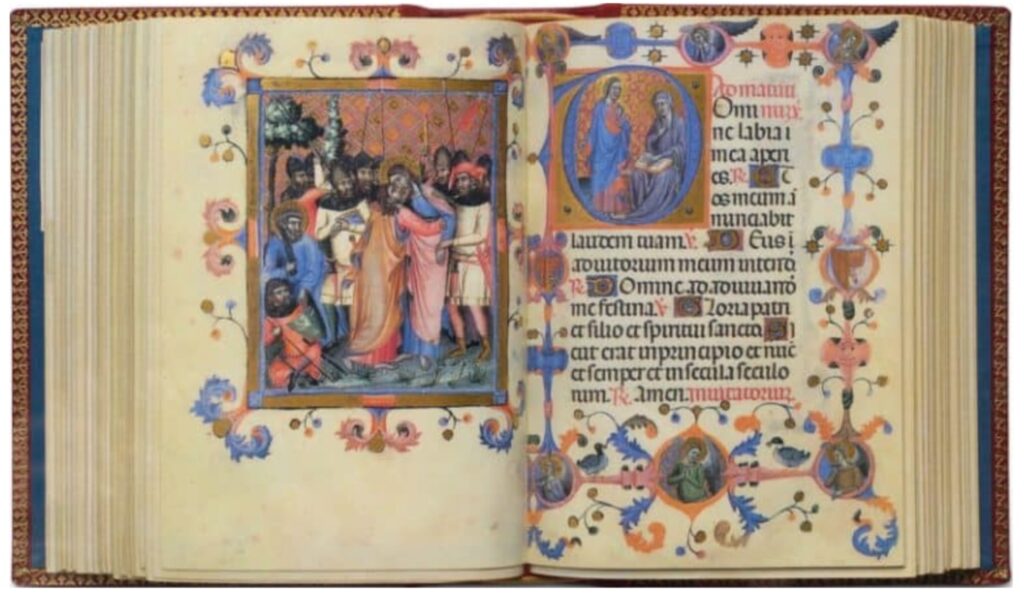 Ad matuti
Domi nuz
ne labia
mea aperi
es. R. Et
os meum a
nuntiabit
laudem tuam. V. Deus i
adiutorium meum intende
R. Domine ad adiuvandu
me festina. V. Gloria patri
et filio et spiritui sancto. Si
cut erat in principio et nuc
et semper et in secula seculo
rum. R. Amen. invitatorium.